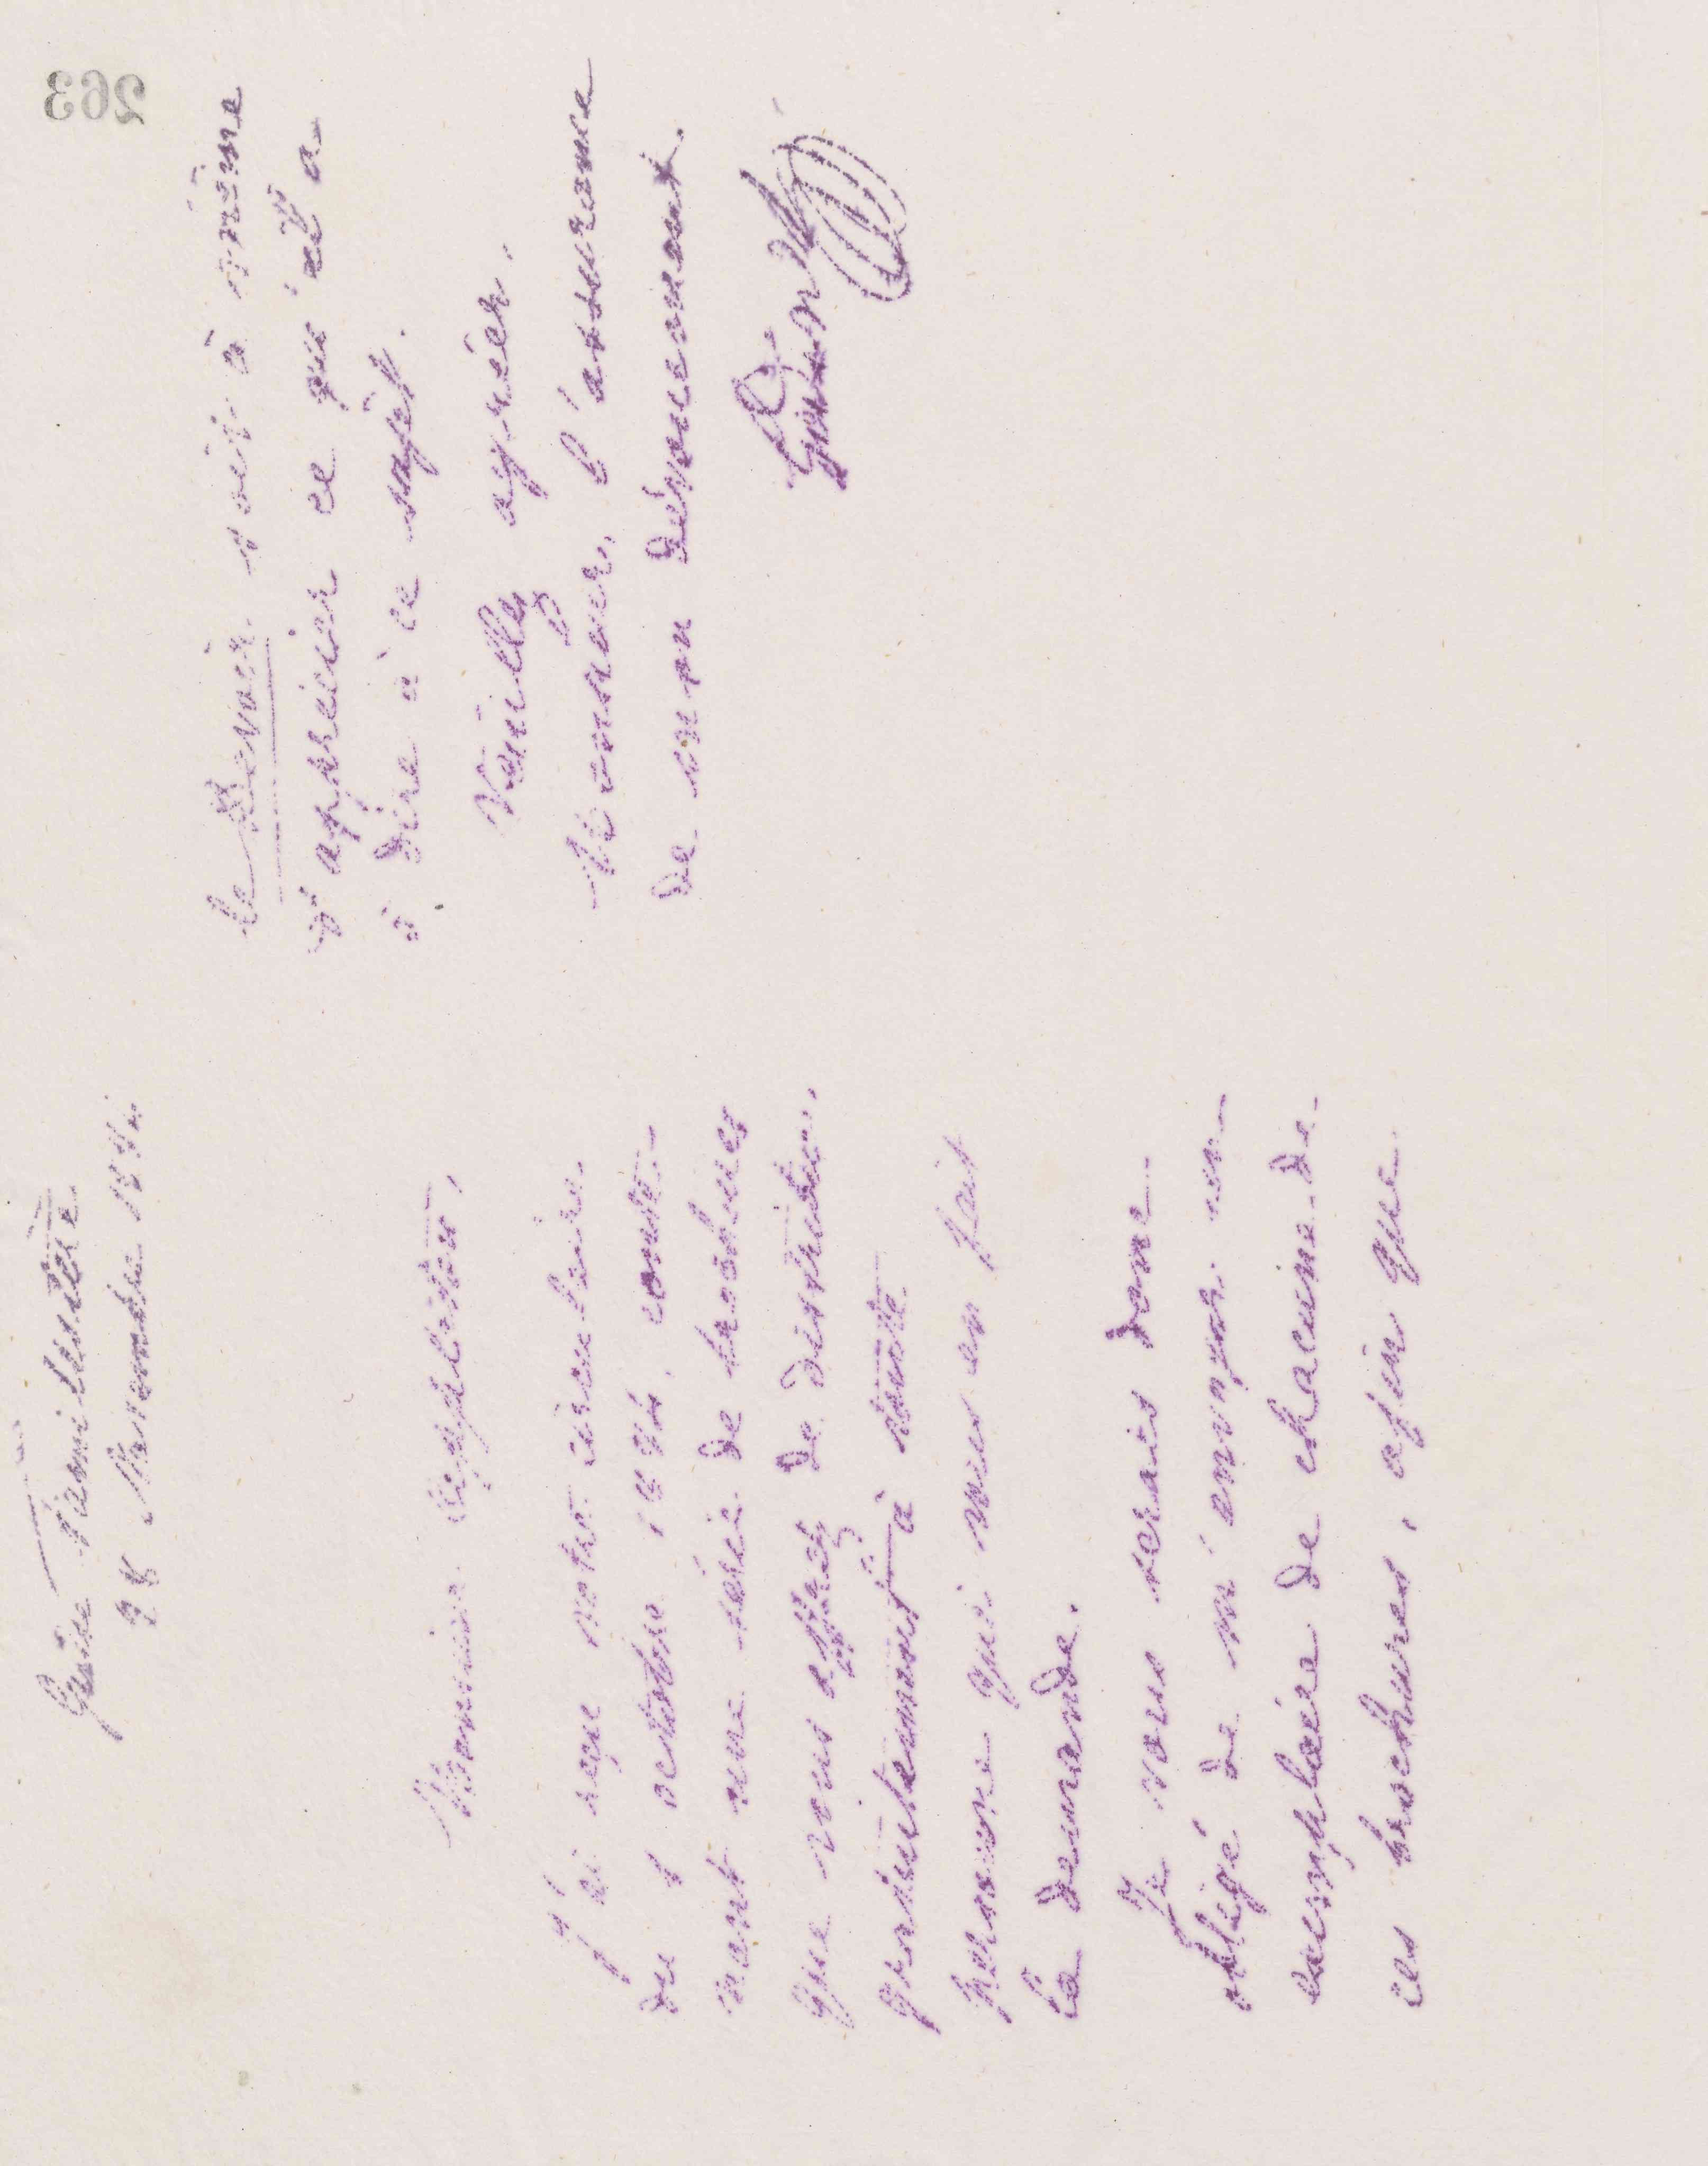 263
Guise Familistère
28 Novembre 18
Monsieur
J'ai reçu votre circulaire
du 1 octobre conte-
nant une série de brochures
que vous offrez de distribuer
gratuitement à toute
personne qui vous en fait
la demande.
Je vous serais donc
obligé de m'envoyer un
exemplaire de chacune de
ces brochures, afin que
le Devoir soit à même
d'apprécier ce qu'il a
à dire à ce sujet.
Veuillez agréer,
Monsieur, l'assurance
de mon dévouement.
Godin